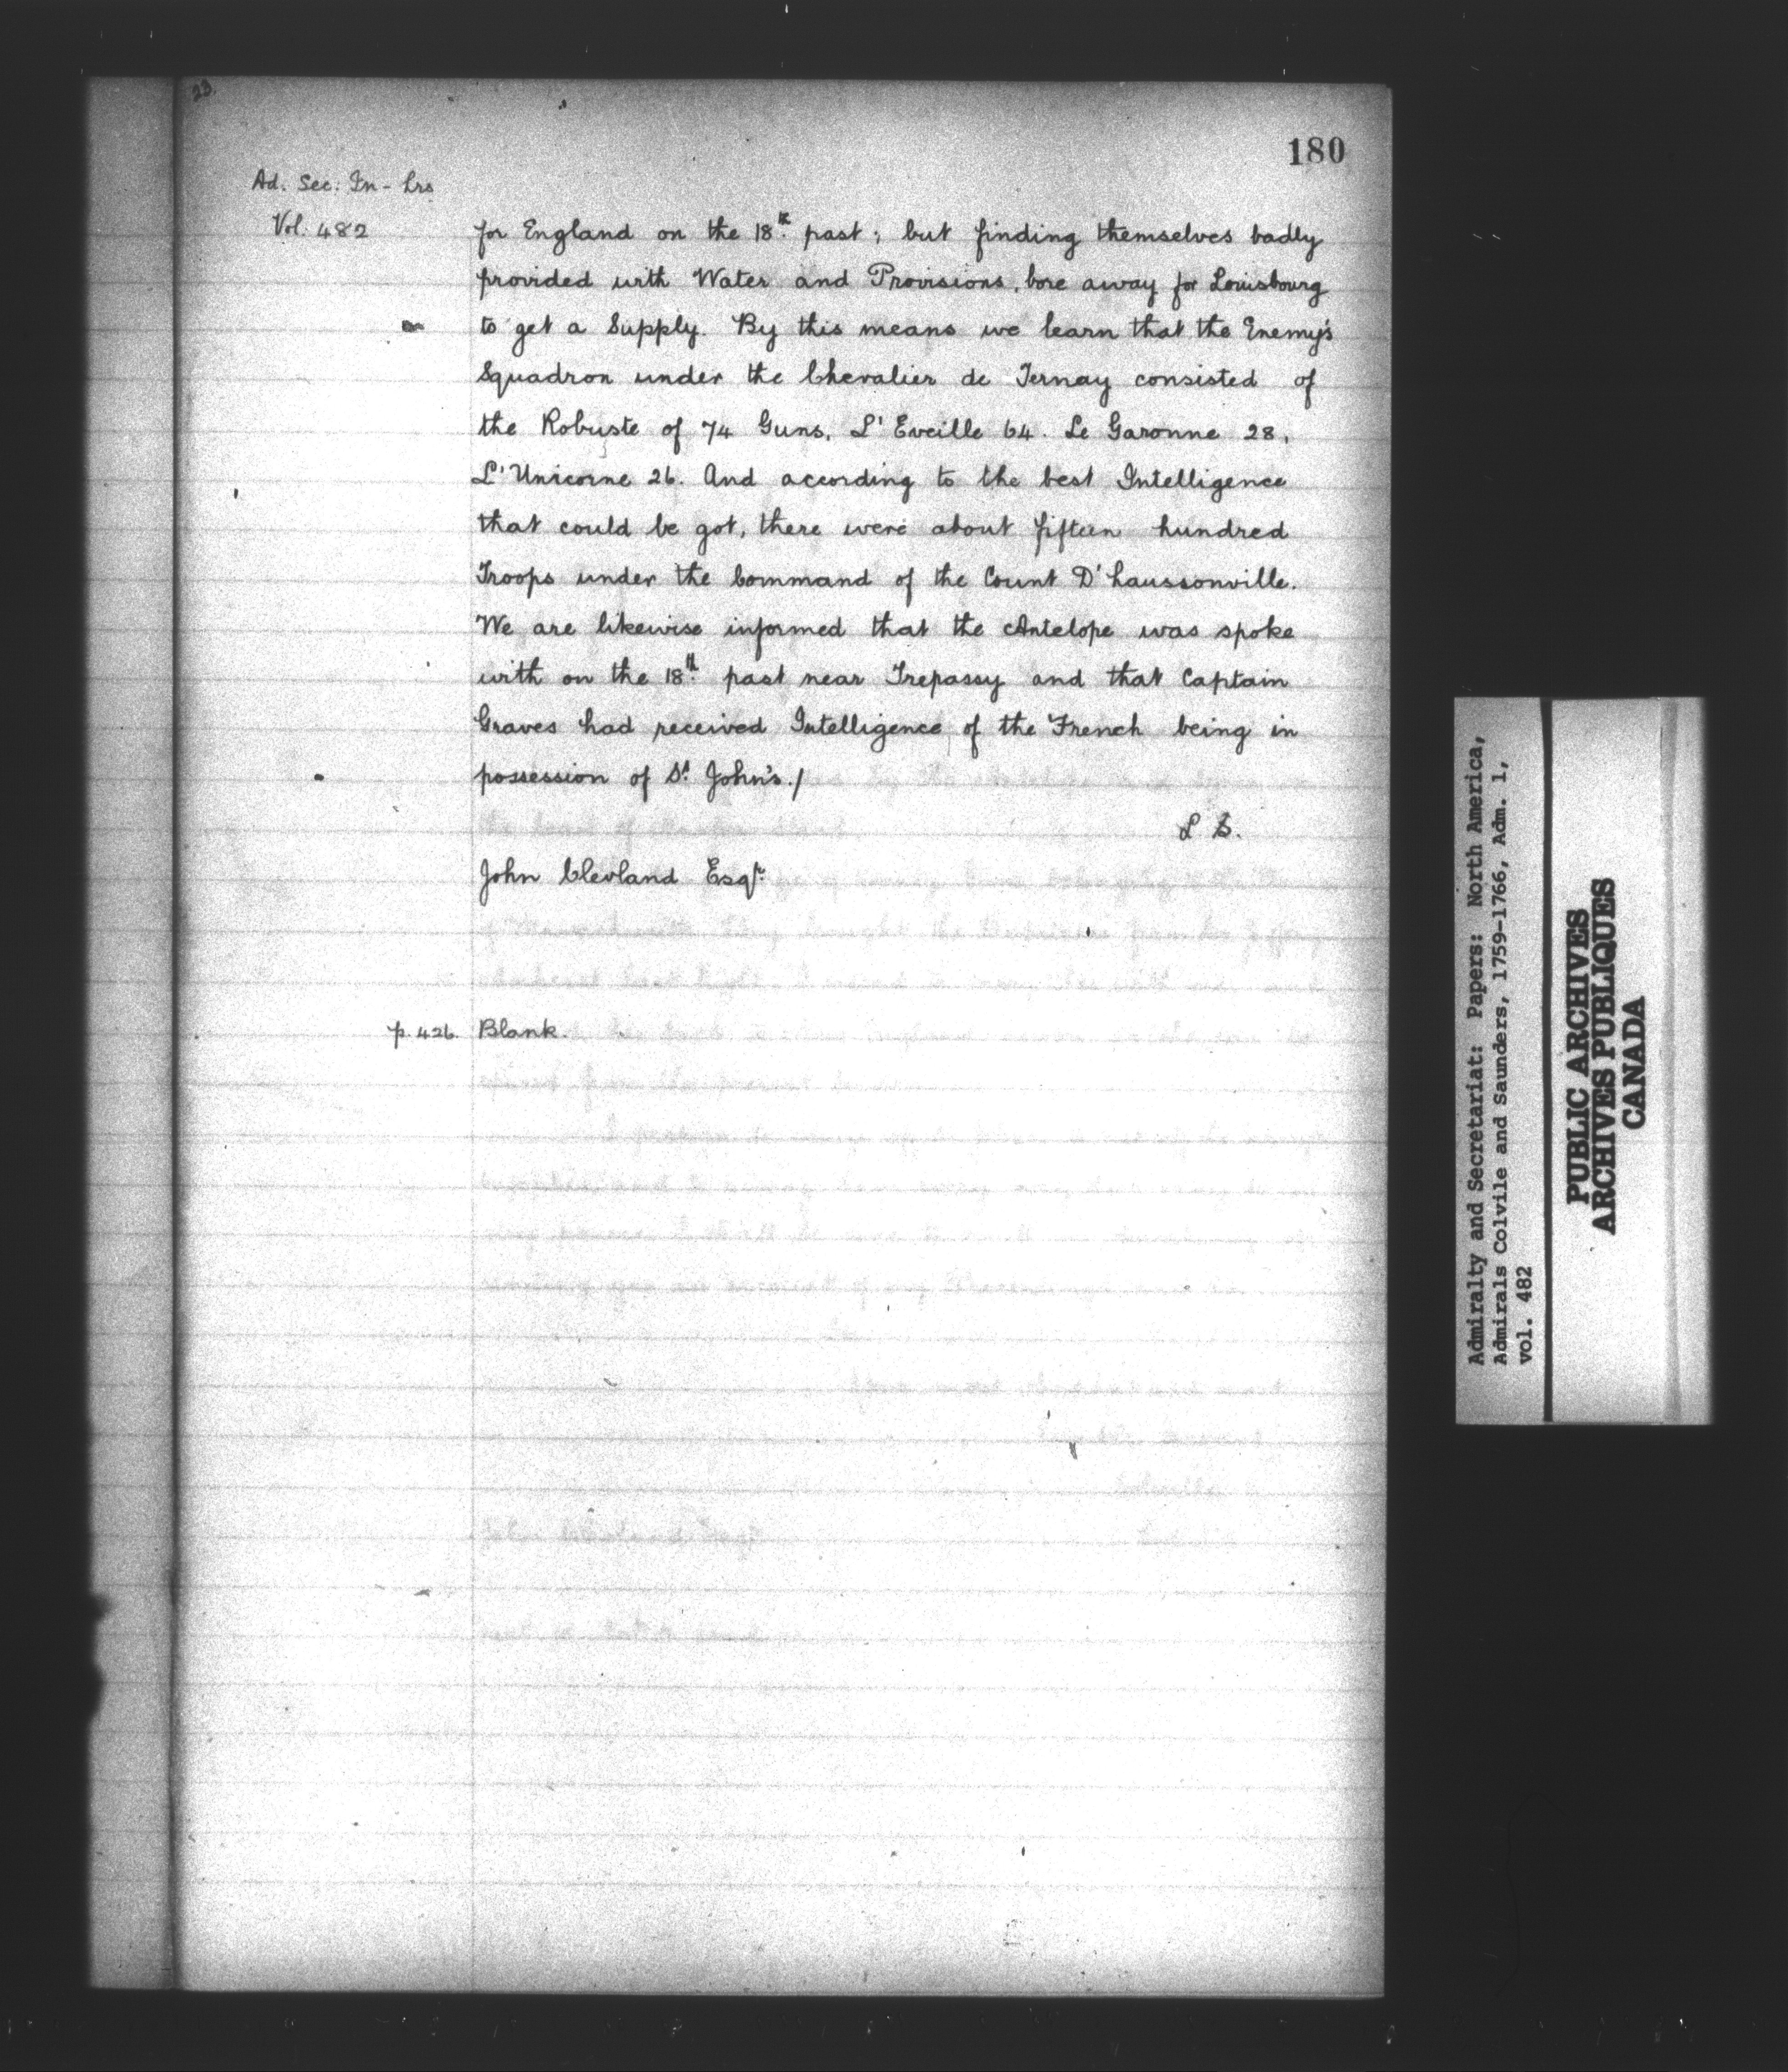 23.
180
Ad. Sec: In - Lrs
Vol. 482
for England on the 18th. past; but finding themselves badly
provided with Water and Provisions, bore away for Louisbourg
to get a Supply. By this means we learn that the Enemy's
Squadron under the Chevalier de Ternay consisted of
the Robuste of 74 Guns, L'Eveille 64. Le Garonne 28,
L'Unicorne 26. And according to the best Intelligence
that could be got, there were about fifteen hundred
Troops under the Command of the Count D'haussonville.
We are likewise informed that the Antelope was spoke
with on the 18th. past near Trepassy and that Captain
Graves had received Intelligence of the French being in
possession of St. John's./
John Clevland Esqr.
p. 426. Blank.
Admiralty and Secretariat: Papers: North America,
Admirals Colvile and Saunders, 1759-1766, Adm. 1,
vol. 482
PUBLIC ARCHIVES
ARCHIVES PUBLIQUES
CANADA